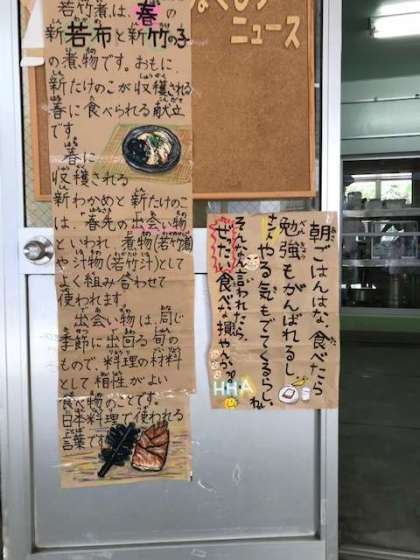 ニュース
若竹煮は、春の
新若布と新竹の子
の煮物です。おもに
新たけのこが収穫される
春に食べられる献立
です。
春に
収穫される
新わかめと新たけのこ
は、"春先の出会い物"
といわれ、煮物(若竹煮)
や汁物(若竹汁)として
よく組み合わせて
使われます。
出会い物は、同じ
季節に出回る旬の
もので、料理の材料
として相性がよい
食べ物のことです。
日本料理で使われる
言葉です。
朝ごはんはな、食べたら
勉強もがんばれるし、
やる気もでてくるらしいねん。
そんなん言われたら、
ぜったい食べな損やん。
HHA